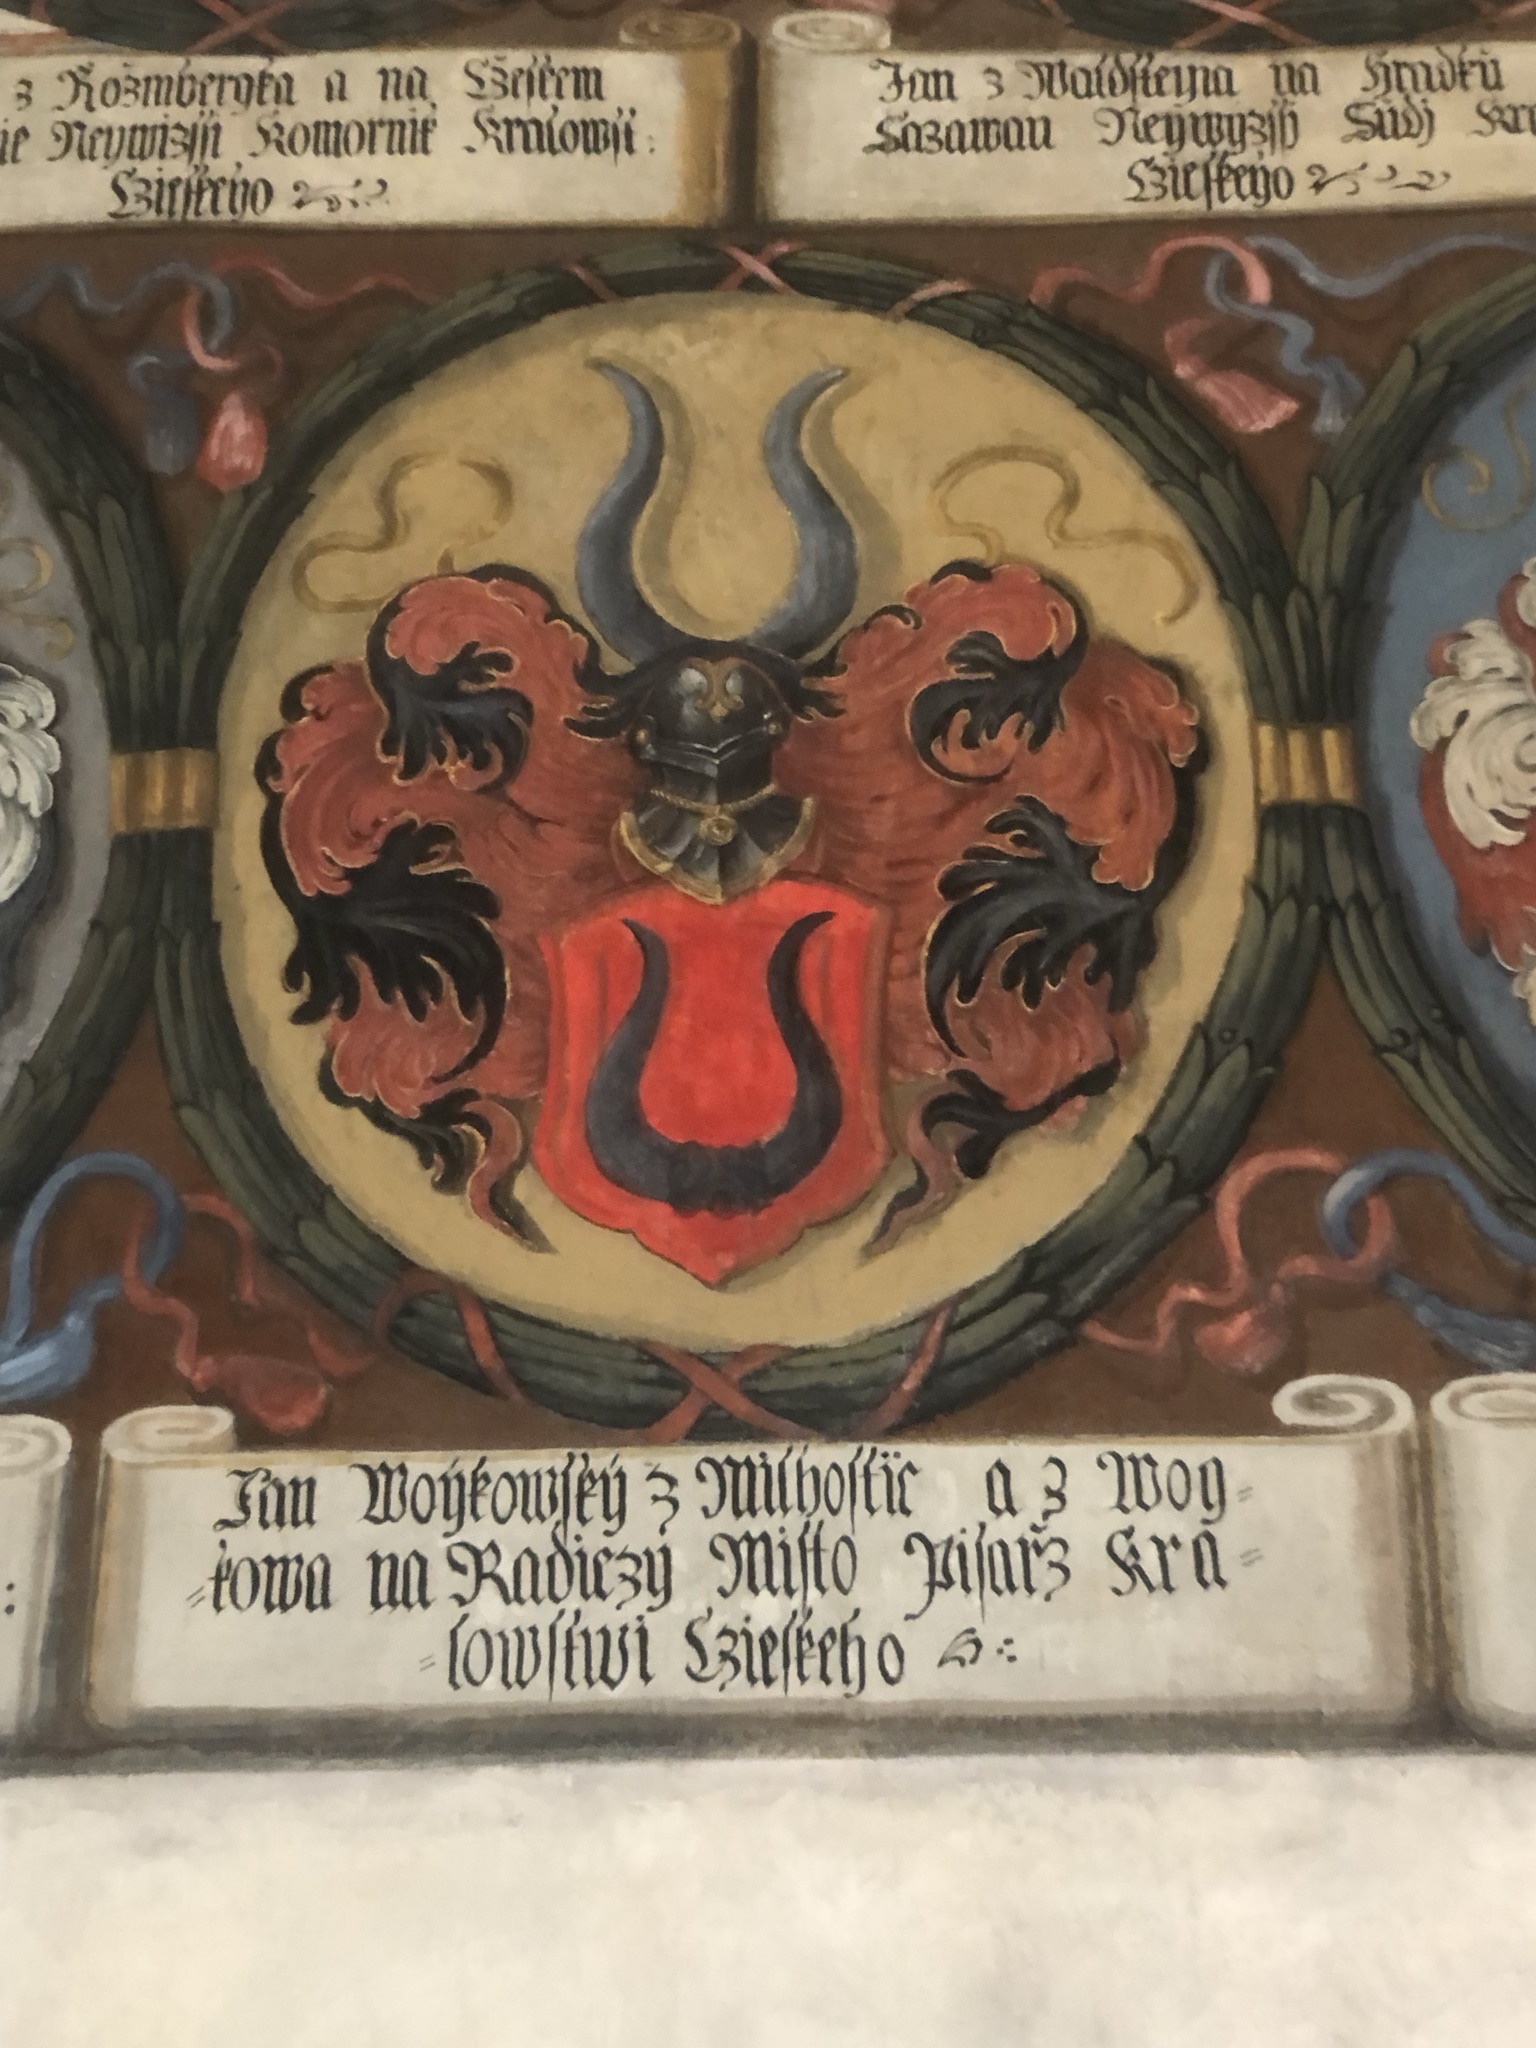 z Rožmbergka a na Cžeskem
Neywizssi Komornik Kralowstj:
Czieskeyo
Jan z Waldsteyna na Hradku
Sazawau Neywyzsh Sudj Kr
Czieskeyo
Jan Woÿkowskÿ z Milhostïc a z Woy=
=kowa na Radiczÿ Misto Pisařz Kra=
=lowstwi Czieskeho